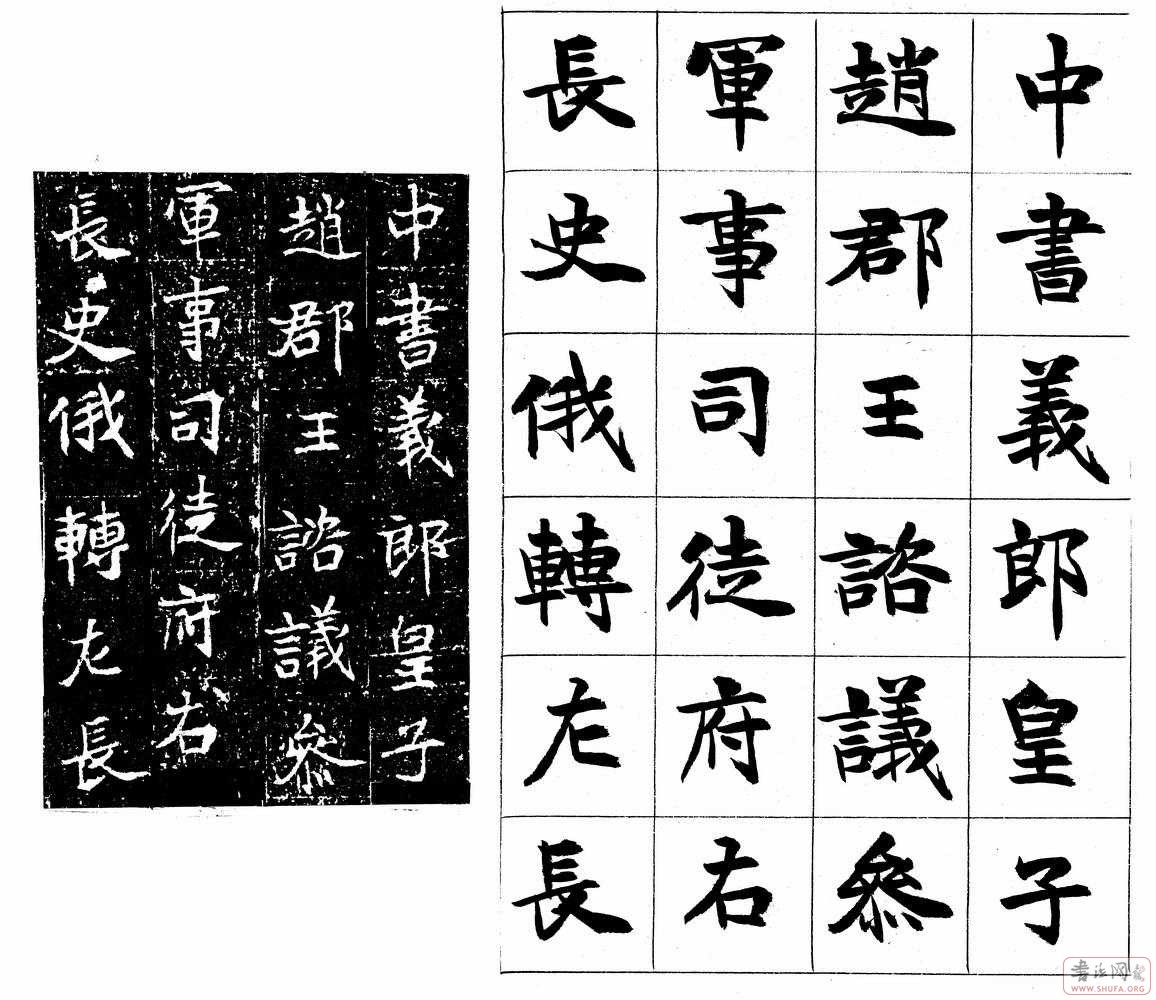 中書義郎皇子
趙郡王諮議叅
軍事司徒府右
長史俄轉左長
中書義郎皇子
趙郡王諮議叅
軍事司徒府右
長史俄轉左長
書法网
WWW.SHUFA.ORG